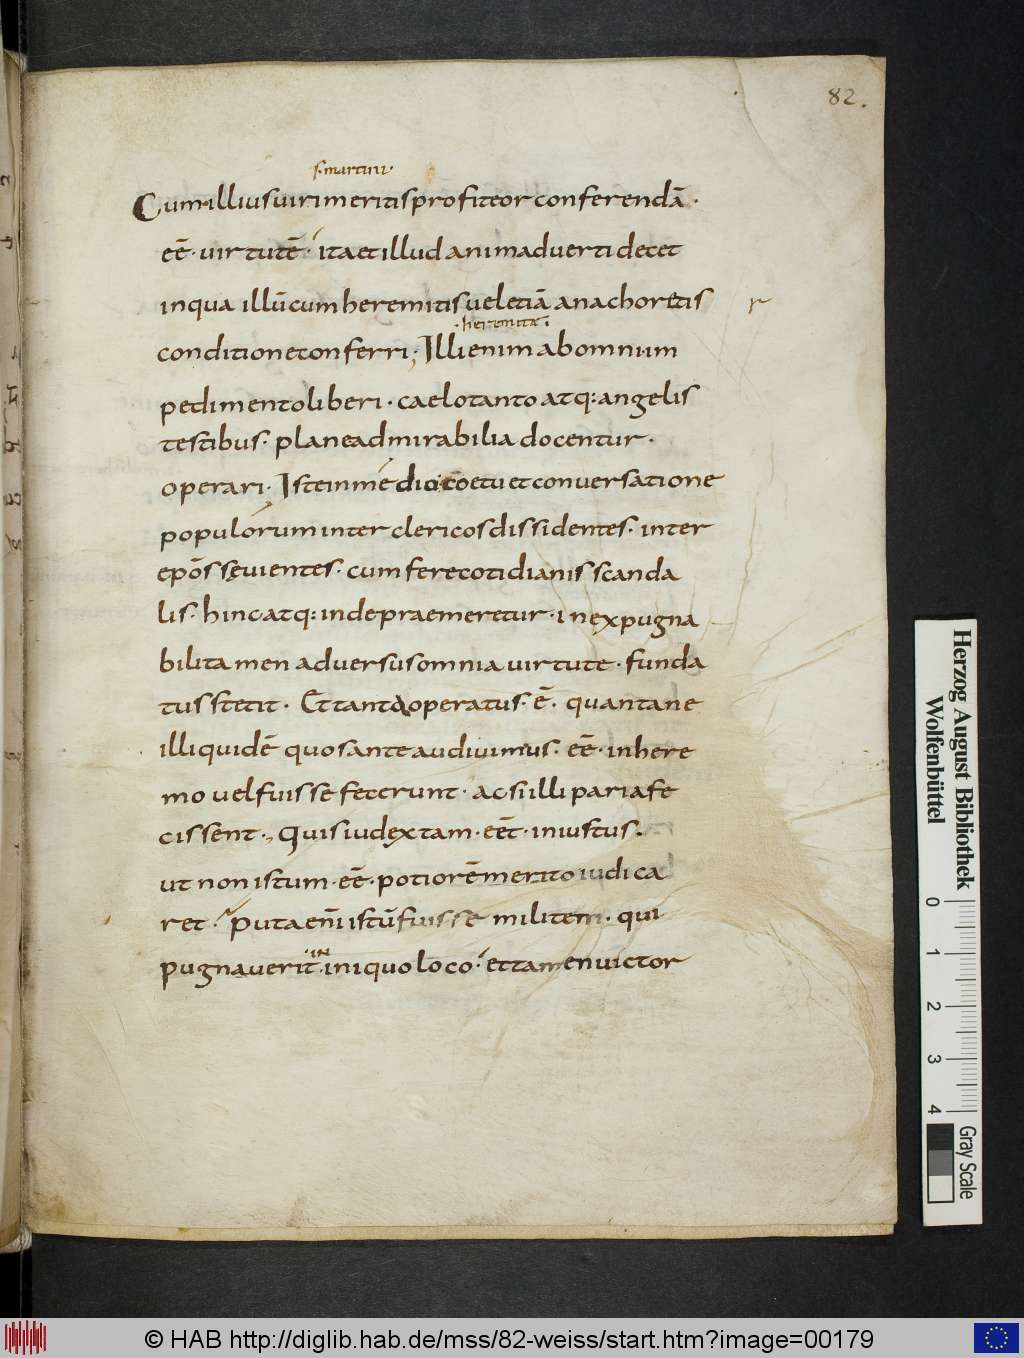 82.
s. martini.
Cum illius viri meritis profiteor conferendā.
eē. virtutē. ita et illud animadverti decet
inqua illū cum heremitis vel etiā anachoretis
.heremitae.
conditione conferri; Illi enim ab omni um
pedimento liberi. caelo tanto atq: angelis
testibus. plane admirabilia docentur.
operari. Iste in medi coetu et conversatione
populorum inter clericos dissidentes. inter
epōs sęvientes. cum fere cotidianis scanda
lis. hinc atq: inde praemeretur. inexpugna
bili tamen adversus omnia virtute. funda
tus stetit. Et tanta operatus. ē. quanta ne
illi quidē quos ante audivimus. eē. in here
mo vel fuisse fecerunt. ac si illi paria fe
cissent., Quis iudex tam. eēt. iniustus.
ut non istum. eē. potiorē merito iudica
ret. Puta enī istū fuisse militem. qui
pugnaverit in iniquo loco. et tamen victor
Herzog August Bibliothek
Wolfenbüttel
0 1 2 3 4
Gray Scale
© HAB http://diglib.hab.de/mss/82-weiss/start.htm?image=00179